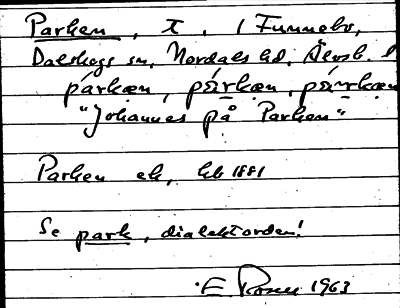 Parken, т. i Funnebo,
Dalskogs sn, Nordals hd, Älvsb. l
párkæn, párkæn, párrkæn
"Johannes på Parken"
Parken ek, kb 1881
Se park, dialektorden!
E 1963